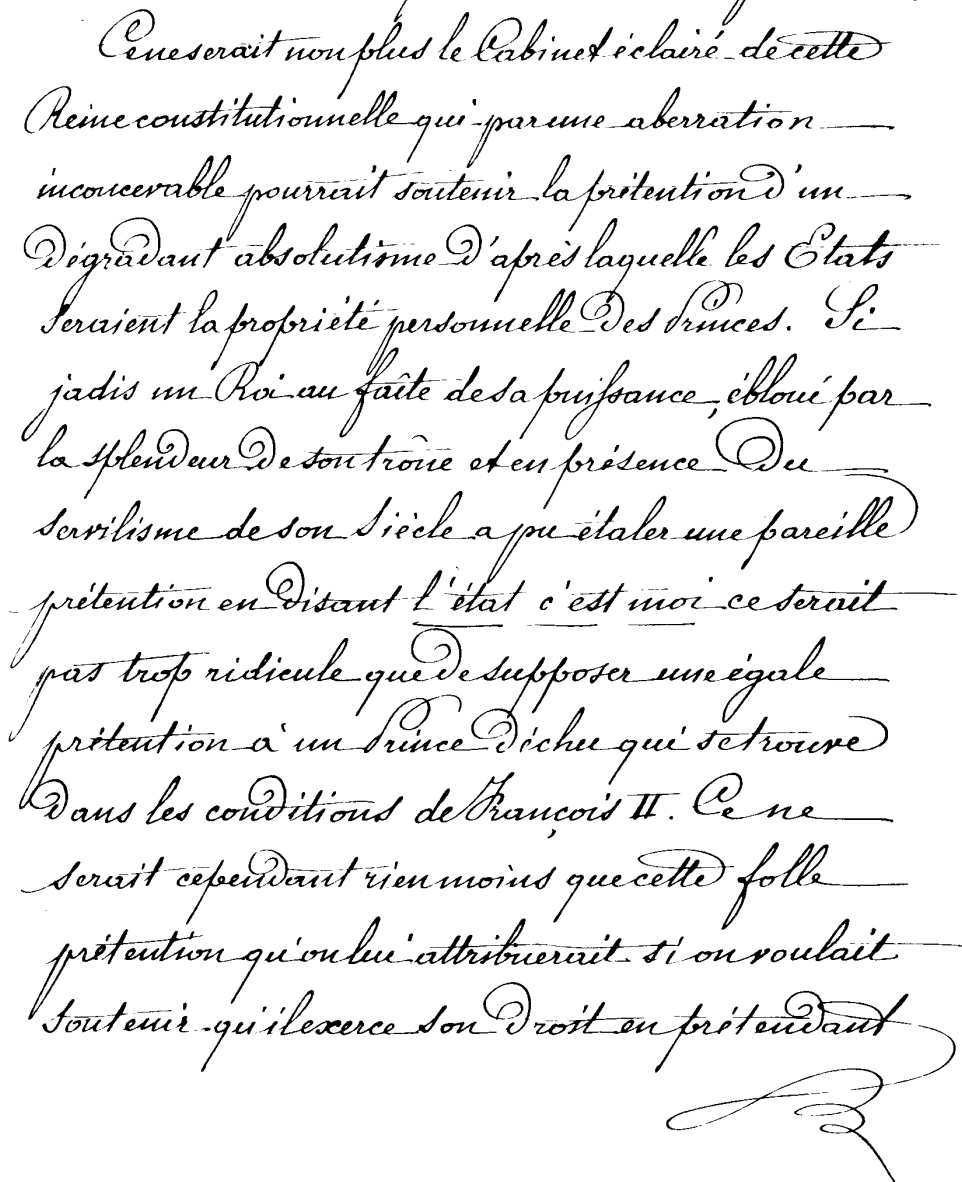 Ce ne serait non plus le Cabinet éclairé de cette
Reine constitutionnelle qui par une aberration
inconcevable pourrait soutenir la prétention d'un
dégradant absolutisme d'après laquelle les Etats
seraient la propriété personnelle des Princes. Si
jadis un Roi au faîte de sa puissance, ébloui par
la splendeur de son trône et en présence du
servilisme de son Siècle a pu étaler une pareille
prétention en disant l'état c'est moi ce serait
pas trop ridicule que de supposer une égale
prétention à un Prince déchu qui se trouve
dans les conditions de François II. Ce ne
serait cependant rien moins que cette folle
prétention qu'on lui attribuerait si on voulait
soutenir qu'il exerce son droit en prétendant